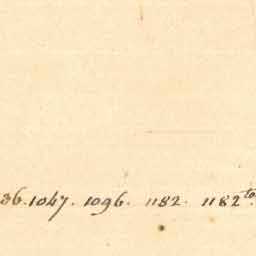 36. 1047. 1096. 1182. 1182to.